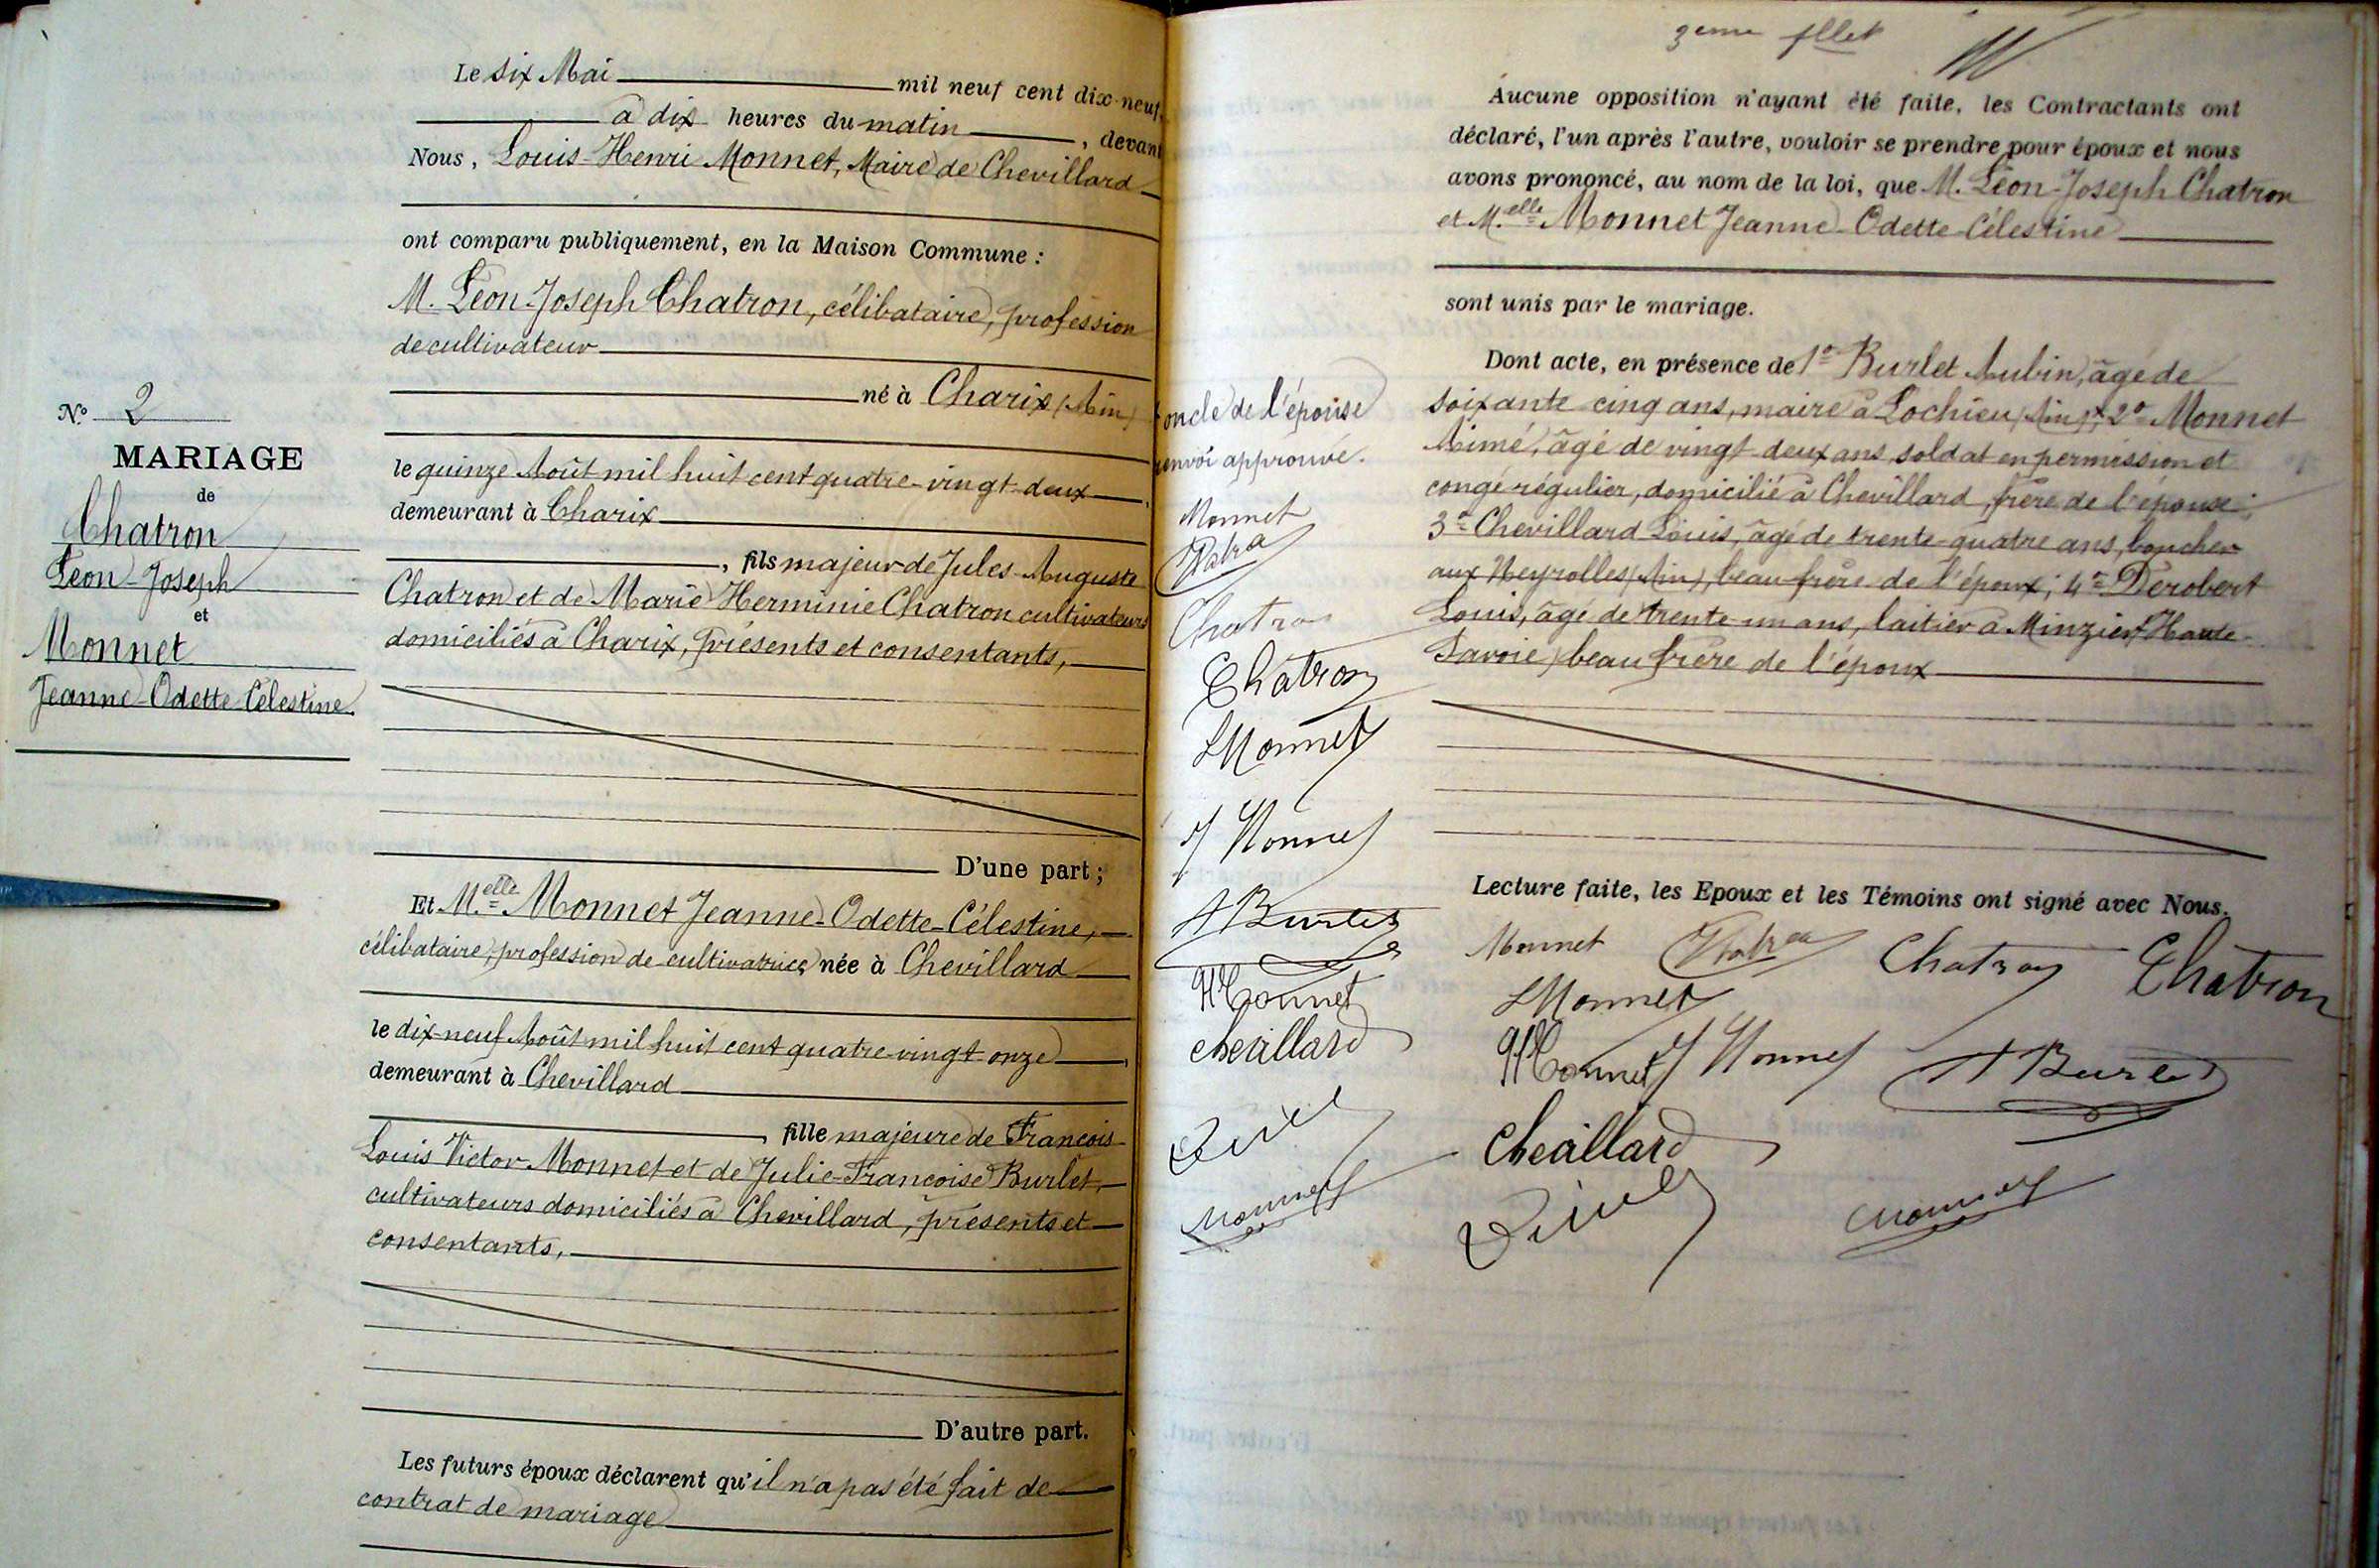 N° 2
MARIAGE
de
Chatron
Léon-Joseph
et
Monnet
Jeanne-Odette-Célestine
Le six Mai mil neuf cent dix-neuf,
à dix heures du matin, devant
Nous, Louis-Henri Monnet, Maire de Chevillard
ont comparu publiquement, en la Maison Commune :
M. Léon-Joseph Chatron, célibataire, profession
de cultivateur
né à Charix (Ain)
le quinze Août mil huit cent quatre-vingt-deux,
demeurant à Charix
, fils majeur de Jules-Auguste
Chatron et de Marie Herminie Chatron cultivateurs
domiciliés à Charix, présents et consentants,
D'une part ;
Et M.elle Monnet Jeanne-Odette-Célestine,
célibataire, profession de cultivatrice née à Chevillard
le dix-neuf Août mil huit cent quatre-vingt-onze,
demeurant à Chevillard
, fille majeure de François-
Louis Victor Monnet et de Julie-Françoise Burlet,
cultivateurs domiciliés à Chevillard, présents et
consentants,
D'autre part.
Les futurs époux déclarent qu'il n'a pas été fait de
contrat de mariage
3eme fllet
Aucune opposition n'ayant été faite, les Contractants ont
déclaré, l'un après l'autre, vouloir se prendre pour époux et nous
avons prononcé, au nom de la loi, que M. Léon-Joseph Chatron
et M.elle Monnet Jeanne-Odette-Célestine
sont unis par le mariage.
Dont acte, en présence de 1° Burlet Aubin, âgé de
soixante cinq ans, maire à Lochieu (Ain) ; 2° Monnet
Aimé, âgé de vingt-deux ans, soldat en permission et
congé régulier, domicilié à Chevillard, frère de l'épouse ;
3° Chevillard Louis, âgé de trente-quatre ans, boucher
aux Neyrolles (Ain), beau-frère de l'époux ; 4° Derobert
Louis, âgé de trente-un ans, laitier à Minzier (Haute-
Savoie) beau frère de l'époux
oncle de l'épouse
renvoi approuvé.
Monnet
Chatron
Chatron
LMonnet
J Monnet
A Burlet
Monnet
Chevillard
Monnet
Lecture faite, les Epoux et les Témoins ont signé avec Nous.
Monnet Chatron Chatron
LMonnet
Monnet J Monnet A Burlet
Chevillard
Monnet